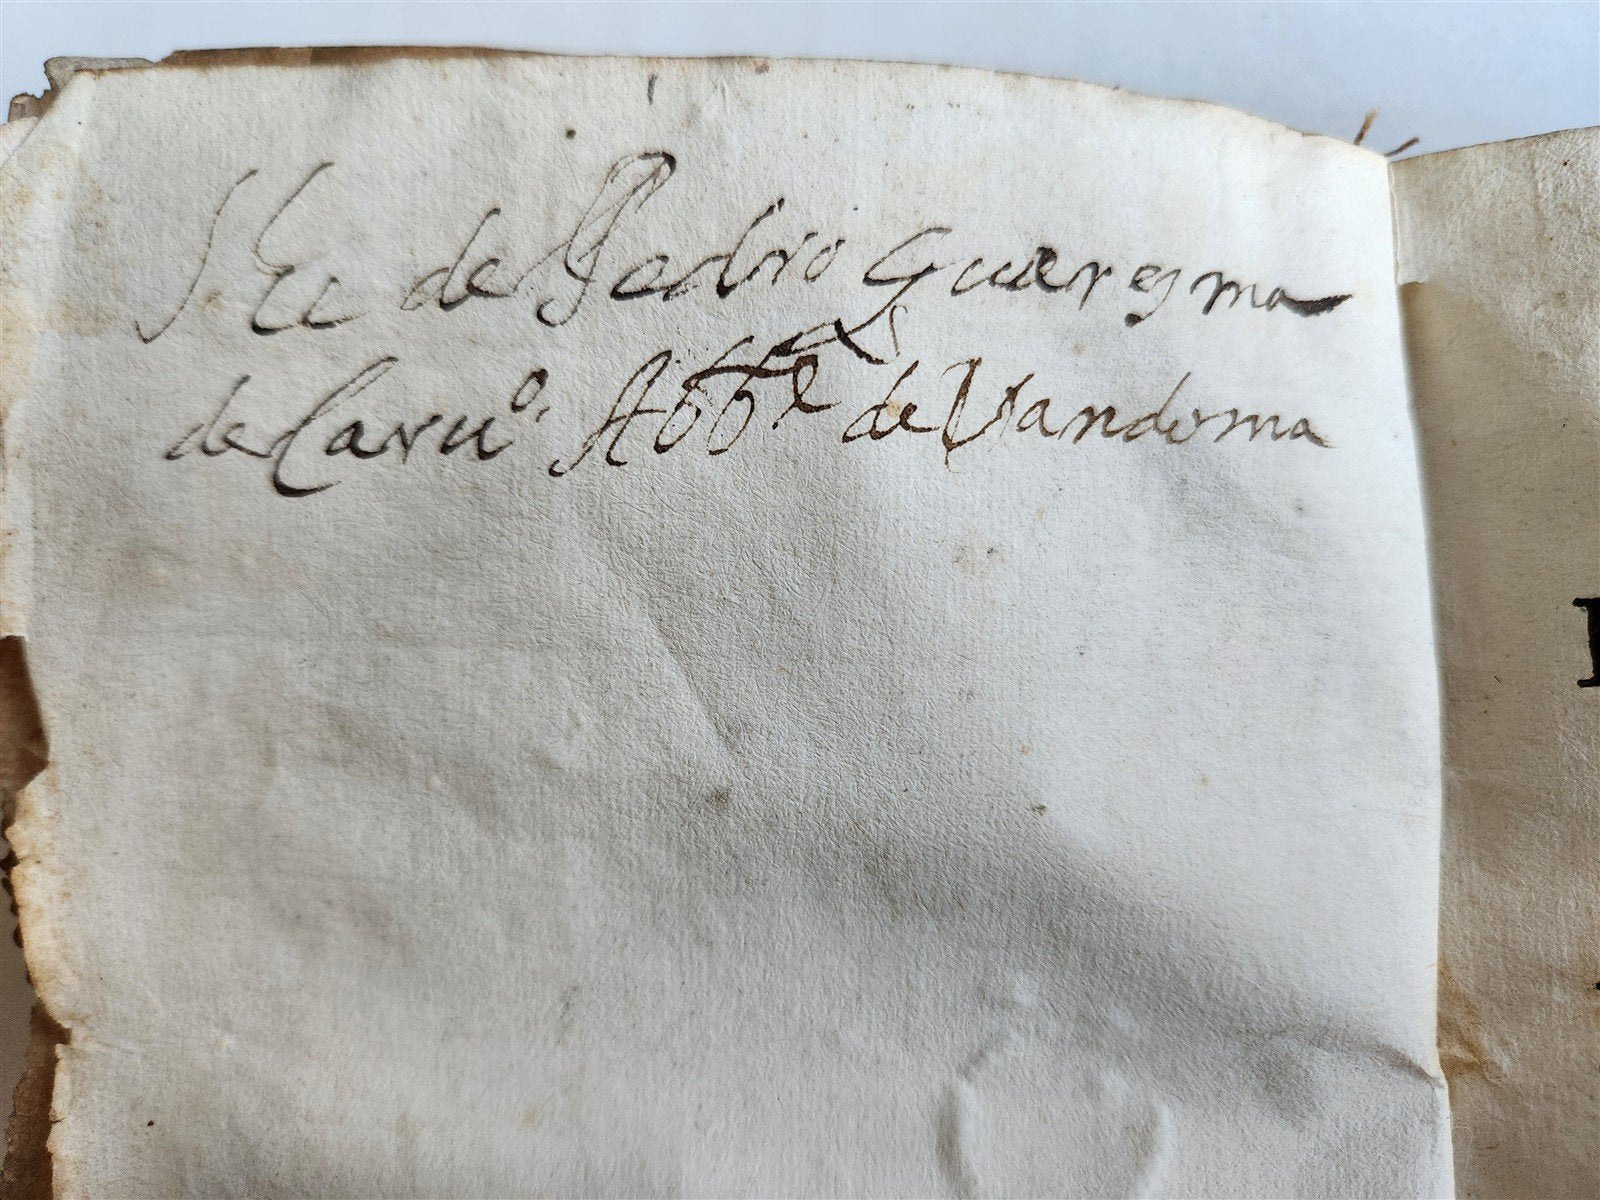 He de Pedro Quaresma
de Caru.º Abb.e de Vandoma